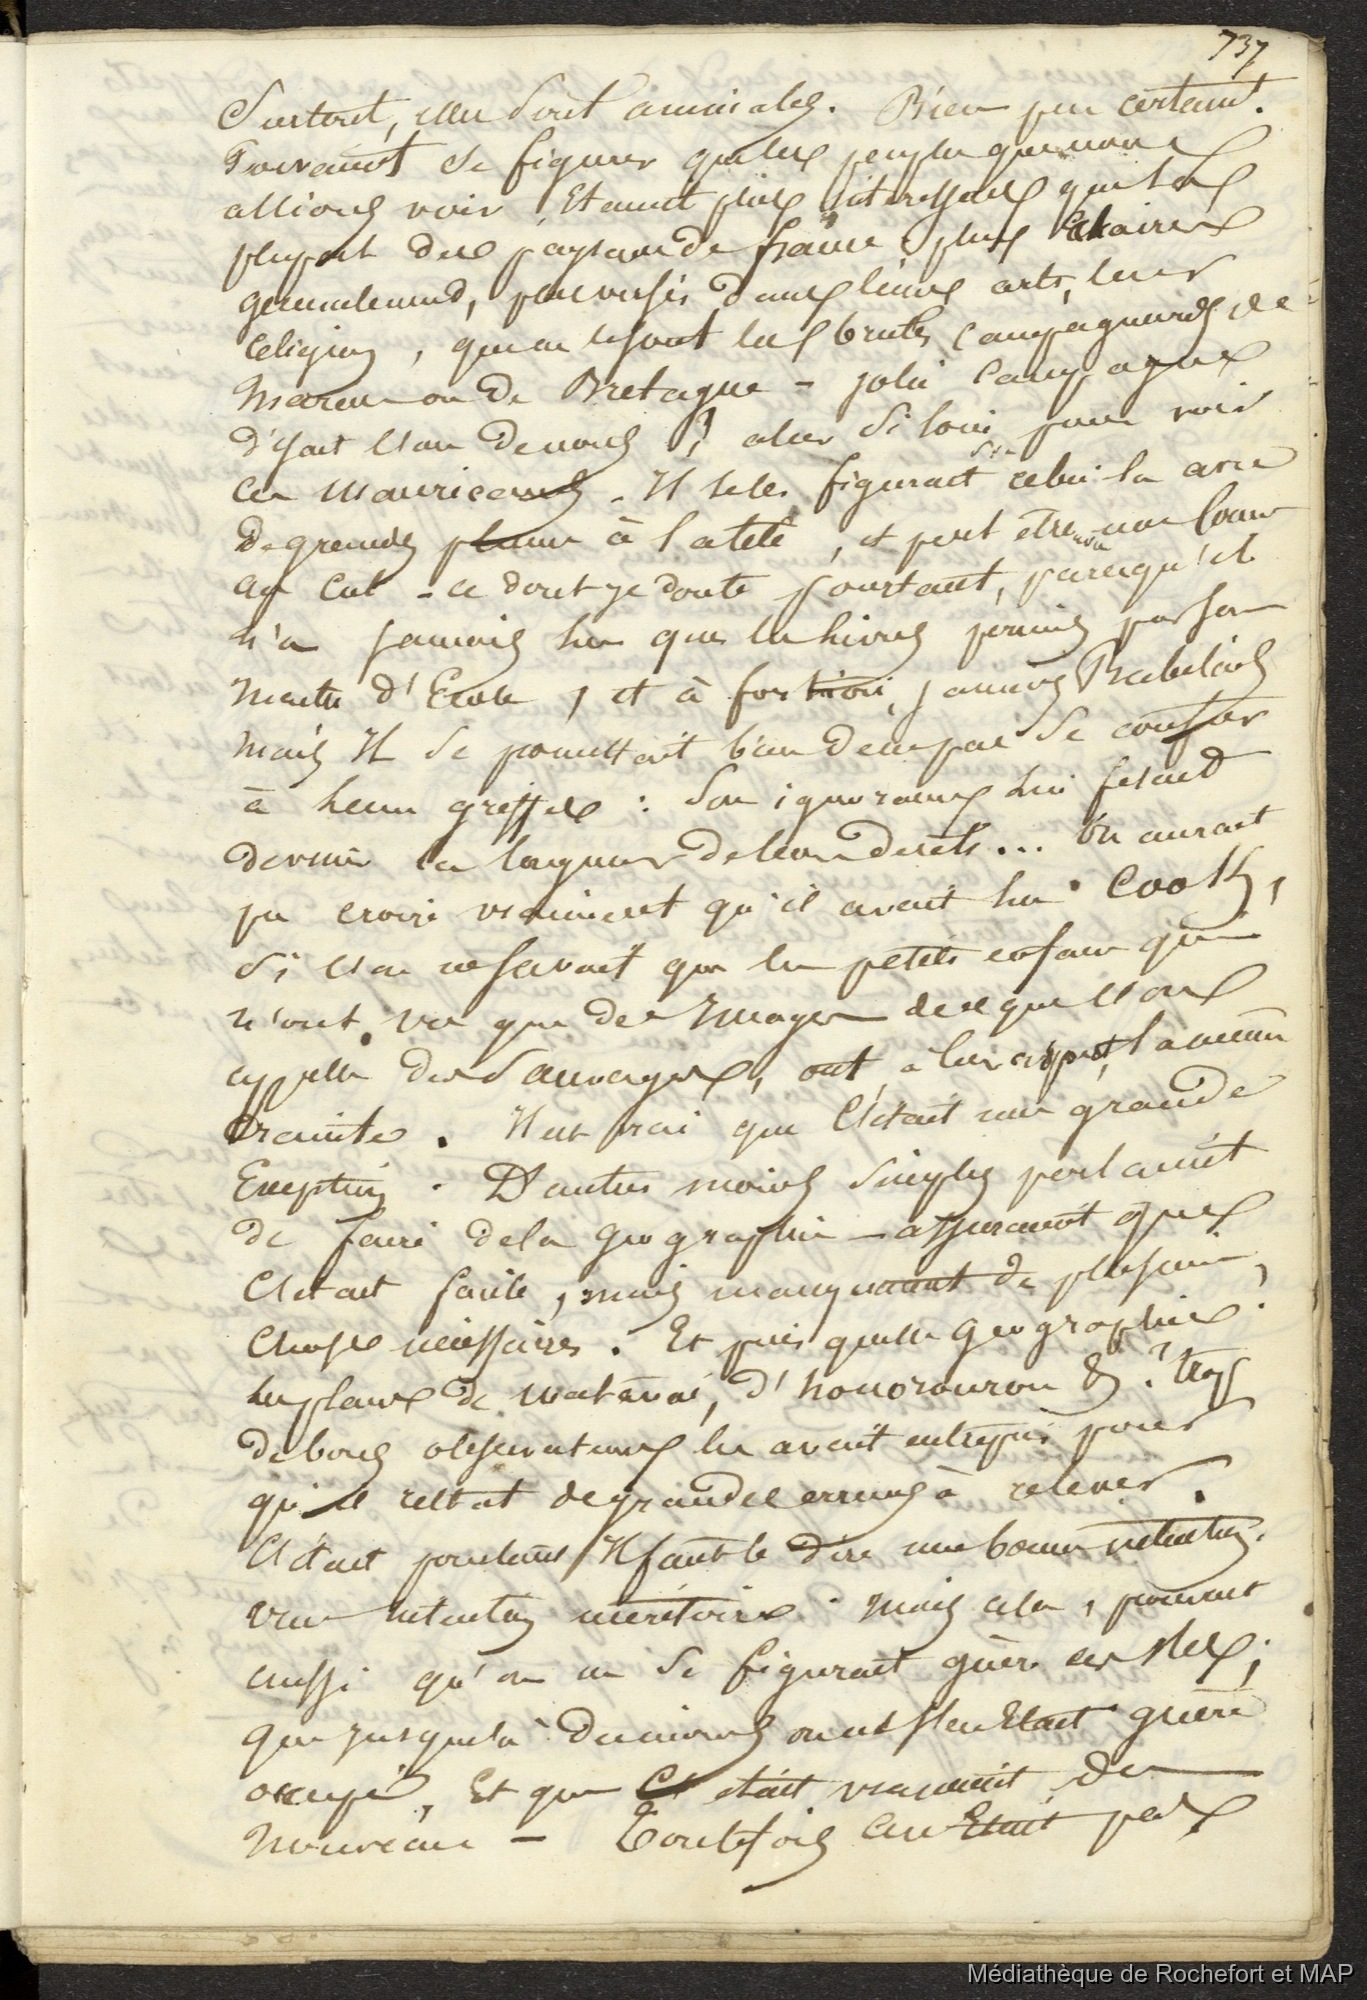 737
Surtout, elles sont amicales. Bien peu certaint.
Pouvaient se figurer que les peuples que nous
allions voir, Etaient plus interessans que la
plupart des paysans de france, plus Eclairés
generalement, plus versés dans leurs arts, leur
religion, que ne le sont les brutes campagnards de
ou de Bretagne - jolie campagne
d'Isait l'un de nous, aler si loin pour voir
ces Mauricauds. Il se les figurait celui la avec
de grandes plumes à la tete, et peut être une
au Cul - ce dont je doute pourtant, parcequ'il
n'a jamais lu que les livres permis par son
maitre d'Ecole, et à fortiori, jamais Rabelais
mais Il se promettait bien de ne pas se confier
à leurs griffes : son ignorance lui fesait
devenir la longueur de leurs dents... On aurait
pu croire vraiment qu'il avait lu Cook,
si l'on ne savait que les petits enfans qui
n'ont vu que des Images de ce que l'on
appelle des Sauvages, ont, à leur aspect, la meme
crainte. Il est vrai que C'etait une grande
Exception. D'autres moins simples parlaient
de faire de la Geographie - assuraient que
C'etait facile, mais manquaient de plusieurs
Choses necessaires. Et puis quelle Geographie.
les plans de matavai, d' honorourou & ? trop
de bons observateurs les avait entrepris pour
qu'il restat de grandes erreurs à relever.
C'etait pourtant Il faut le dire une bonne intention.
une intention meritoire. Mais cela, prouvait
aussi qu'on ne se figurait guère ces Iles;
que jusques là du moins on ne s'en Etait guère
occupé, Et que C' etait vraiment du
nouveau - Toutefois ce n'Etait pas
Médiathèque de Rochefort et MAP